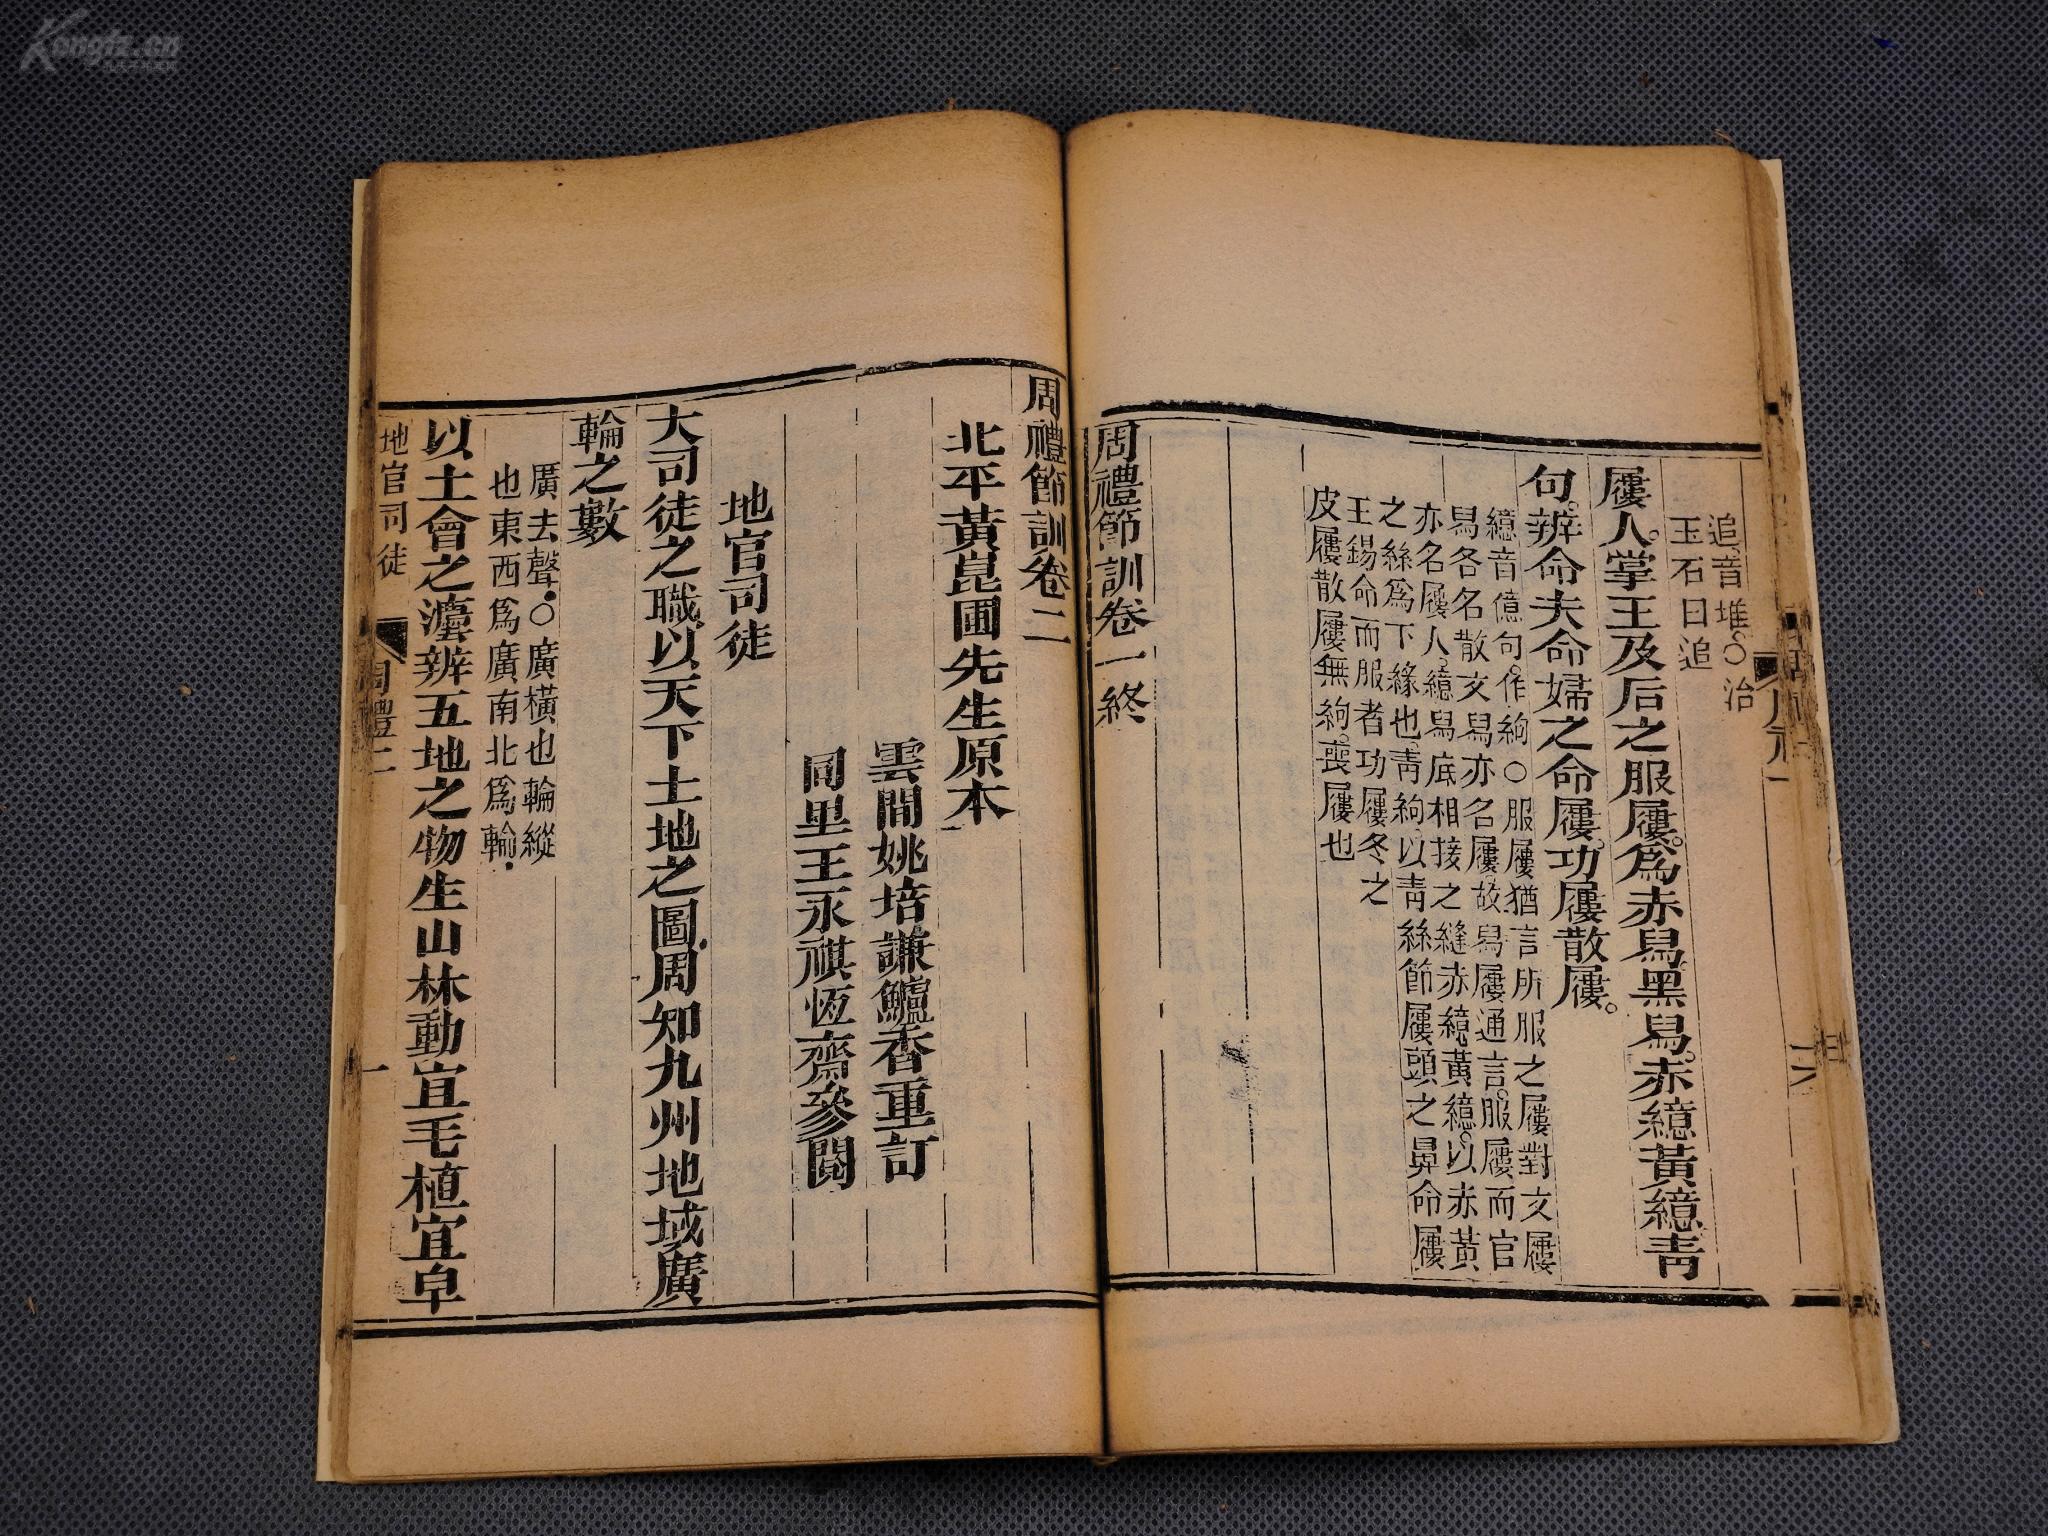 追音堆○治
玉石曰追
屨人掌王及后之服屨爲赤舄黑舄赤繶黃繶靑
句辨命夫命婦之命屨功屨散屨
繶音億句作絇○服屨猶言所服之屨對文屨
舄各名散文舄亦名屨故舄屨通言服屨而官
亦名屨人繶舄底相接之縫赤繶黃繶以赤黃
之絲爲下緣也靑絇以靑絲節屨頭之鼻命屨
王錫命而服者功屨冬之
皮屨散屨無絇喪屨也
周禮節訓卷一終
周禮節訓卷二
北平黃崑圃先生原本
雲間姚培謙鱸香重訂
同里王永祺恆齋參閱
地官司徒
大司徒之職以天下土地之圖周知九州地域廣
輪之數
廣去聲○廣橫也輪縱
也東西爲廣南北爲輪
以土會之灋辨五地之物生山林動宜毛植宜皁
地官司徒
周禮二
一
Kongfz.cn